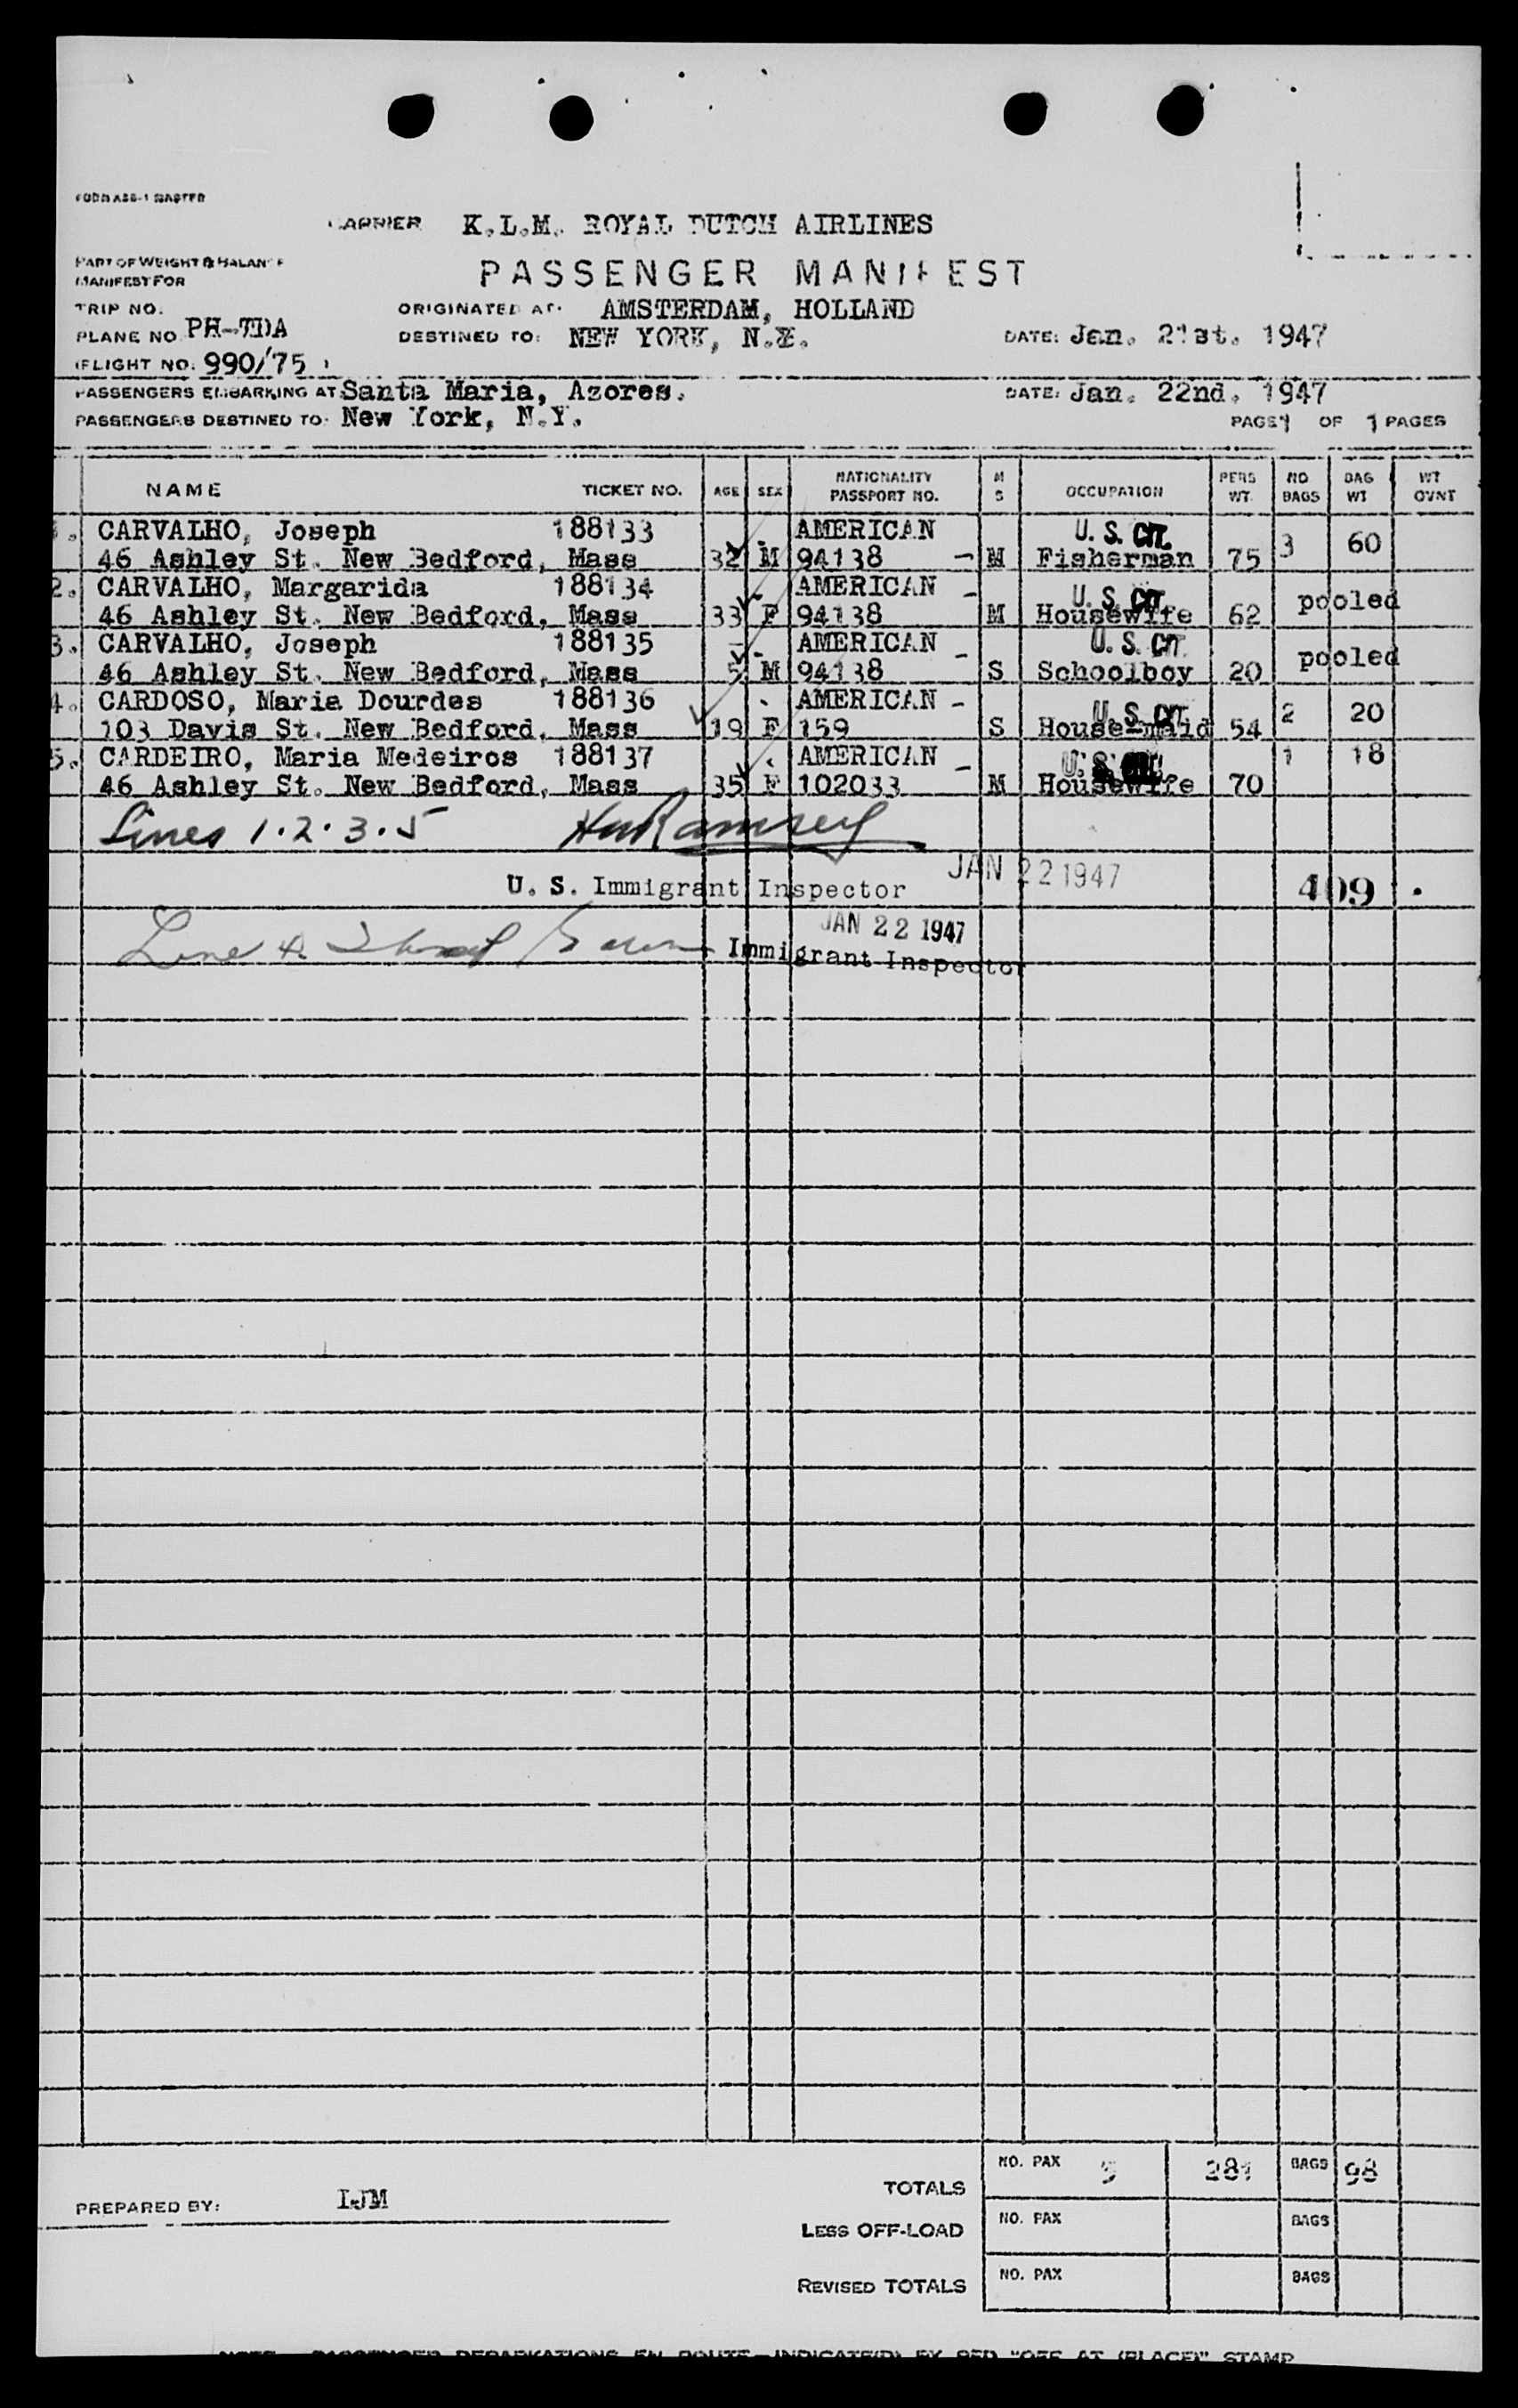 FORM ABS-1 MASTER
CARRIER K.L.M. ROYAL DUTCH AIRLINES
PART OF WEIGHT & BALANCE
MANIFEST FOR
PASSENGER MANIFEST
TRIP NO. ORIGINATED AT: AMSTERDAM, HOLLAND
PLANE NO. PH-TDA DESTINED TO: NEW YORK, N.Y. DATE: Jan. 21st. 1947
(FLIGHT NO: 990/75 )
PASSENGERS EMBARKING AT Santa Maria, Azores. DATE: Jan. 22nd. 1947
PASSENGERS DESTINED TO: New York, N.Y. PAGE 1 OF 1 PAGES
NAME TICKET NO. AGE SEX NATIONALITY PASSPORT NO. M S OCCUPATION PERS WT. NO BAGS BAG WT WT OVNT
1. CARVALHO, Joseph 188133 AMERICAN U. S. CIT. 3 60
46 Ashley St. New Bedford, Mass 32 M 94138 - M Fisherman 75
2. CARVALHO, Margarida 188134 AMERICAN - U. S. CIT. pooled
46 Ashley St. New Bedford, Mass 33 F 94138 M Housewife 62
3. CARVALHO, Joseph 188135 AMERICAN - U. S. CIT. pooled
46 Ashley St. New Bedford, Mass 5 M 94138 S Schoolboy 20
4. CARDOSO, Maria Dourdes 188136 AMERICAN - U. S. CIT. 2 20
103 Davis St. New Bedford, Mass 19 F 159 S House-maid 54
5. CARDEIRO, Maria Medeiros 188137 AMERICAN - U. S. CIT. 1 18
46 Ashley St. New Bedford, Mass 35 F 102033 M Housewife 70
Lines 1.2.3.5 Ramsey
U. S. Immigrant Inspector JAN 22 1947 409 .
JAN 22 1947
Line 4 Immigrant Inspector
TOTALS NO. PAX 5 281 BAGS 98
PREPARED BY: IJM
LESS OFF-LOAD NO. PAX BAGS
REVISED TOTALS NO. PAX BAGS
NOTE PASSENGER DEBARKATIONS EN ROUTE INDICATED BY RED "OFF AT (PLACE)" STAMP